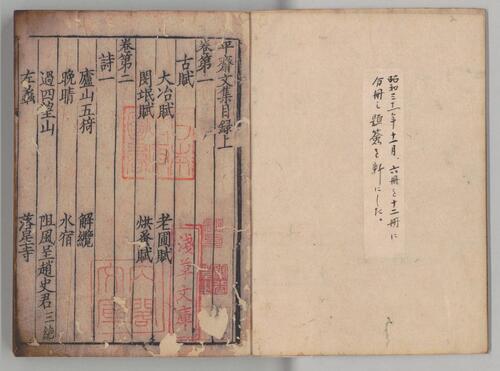 昭和三十一年十一月、六冊を十二冊に
分冊し題簽を新にした。
平齋文集目録上
卷第一
古賦
大冶賦 老圃賦
閔氓賦 烘蚤賦
卷第二
詩一
廬山五猗 解纜
晚晴 水宿
過四望山 阻風呈趙史君三絶
左蠡 落星寺
淺草文庫